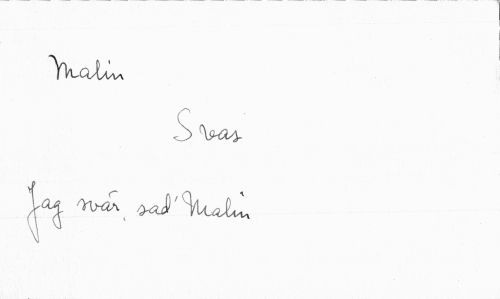 Malin
Svas
Jag svär, sad' Malin